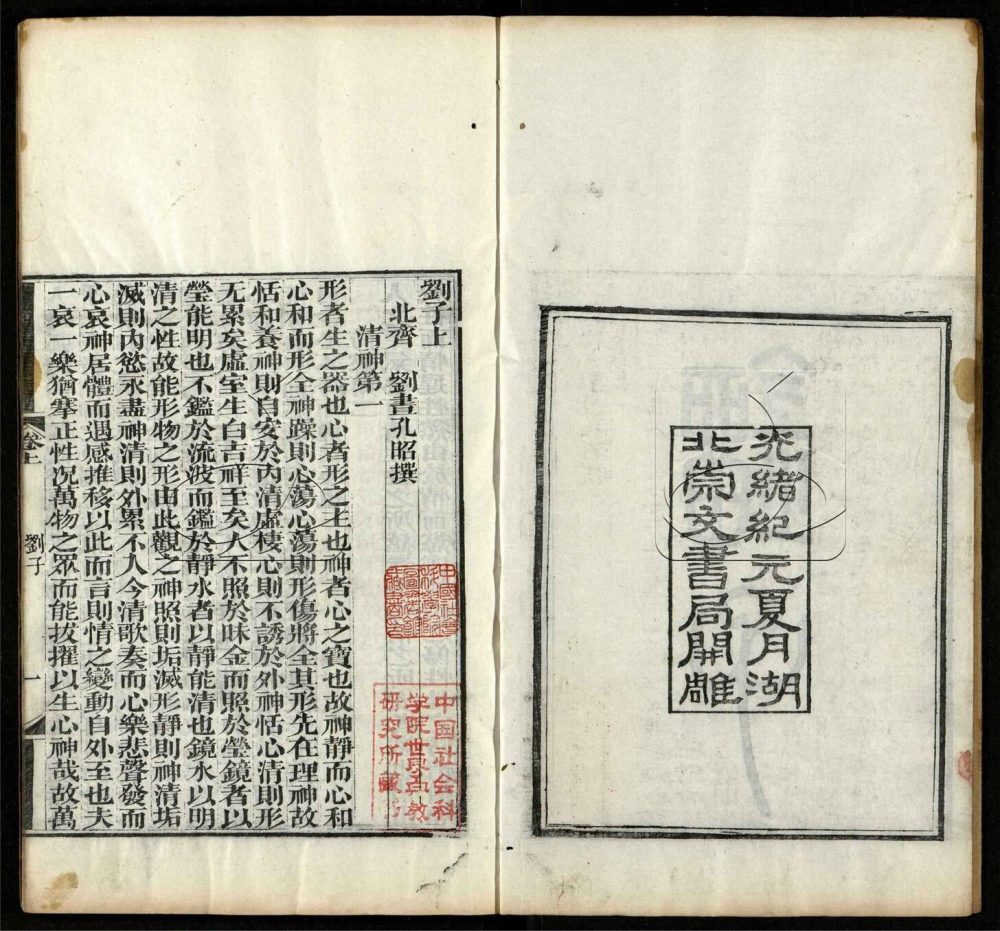 光緒紀元夏月湖
北崇文書局開雕
劉子上
北齊　劉晝孔昭撰
清神第一
形者生之器也心者形之主也神者心之寶也故神靜而心和
心和而形全神躁則心蕩心蕩則形傷將全其形先在理神故
恬和養神則自安於內清虛棲心則不誘於外神恬心清則形
无累矣虛室生白吉祥至矣人不照於昧金而照於瑩鏡者以
瑩能明也不鑑於流波而鑑於靜水者以靜能清也鏡水以明
清之性故能形物之形由此觀之神照則垢滅形靜則神清垢
滅則內慾永盡神清則外累不入今清歌奏而心樂悲聲發而
心哀神居體而遇感推移以此而言則情之變動自外至也夫
一哀一樂猶搴正性况萬物之眾而能拔擢以生心神哉故萬
卷上
劉子
一
中国社会科
学院世界宗教
研究所藏